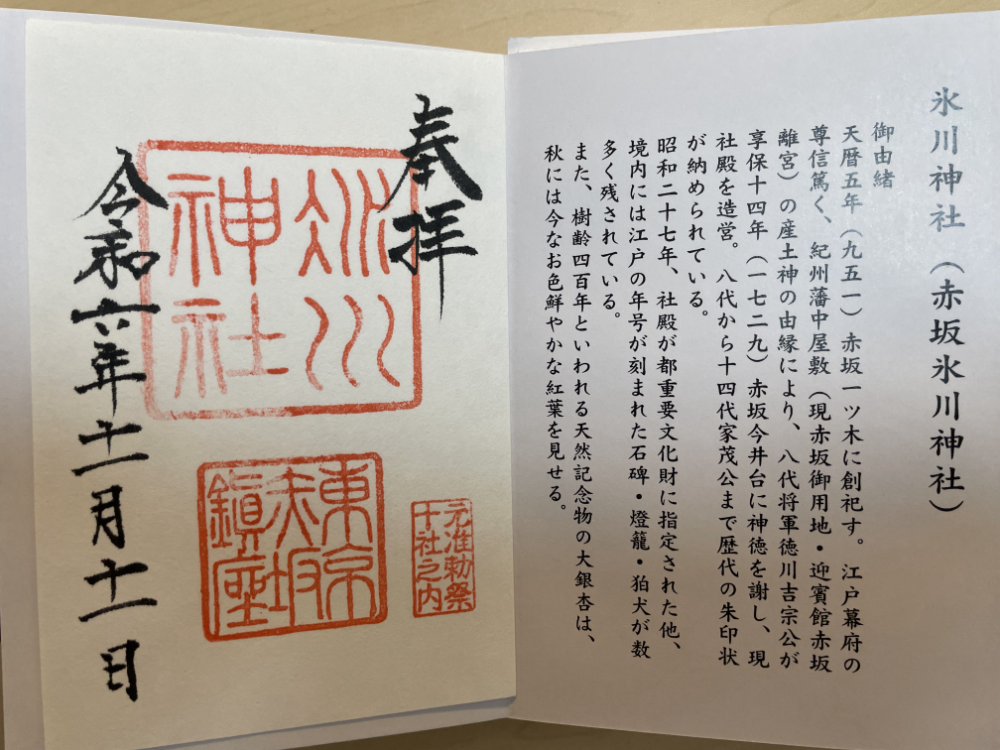 氷川神社（赤坂氷川神社）
御由緒
天暦五年（九五一）赤坂一ツ木に創祀す。江戸幕府の
尊信篤く、紀州藩中屋敷（現赤坂御用地・迎賓館赤坂
離宮）の産土神の由縁により、八代将軍徳川吉宗公が
享保十四年（一七二九）赤坂今井台に神徳を謝し、現
社殿を造営。八代から十四代家茂公まで歴代の朱印状
が納められている。
昭和二十七年、社殿が都重要文化財に指定された他、
境内には江戸の年号が刻まれた石碑・燈籠・狛犬が数
多く残されている。
また、樹齢四百年といわれる天然記念物の大銀杏は、
秋には今なお色鮮やかな紅葉を見せる。
奉拝
氷川
神社
元准勅祭
十社之内
東京
赤坂
鎮座
令和六年十一月十一日